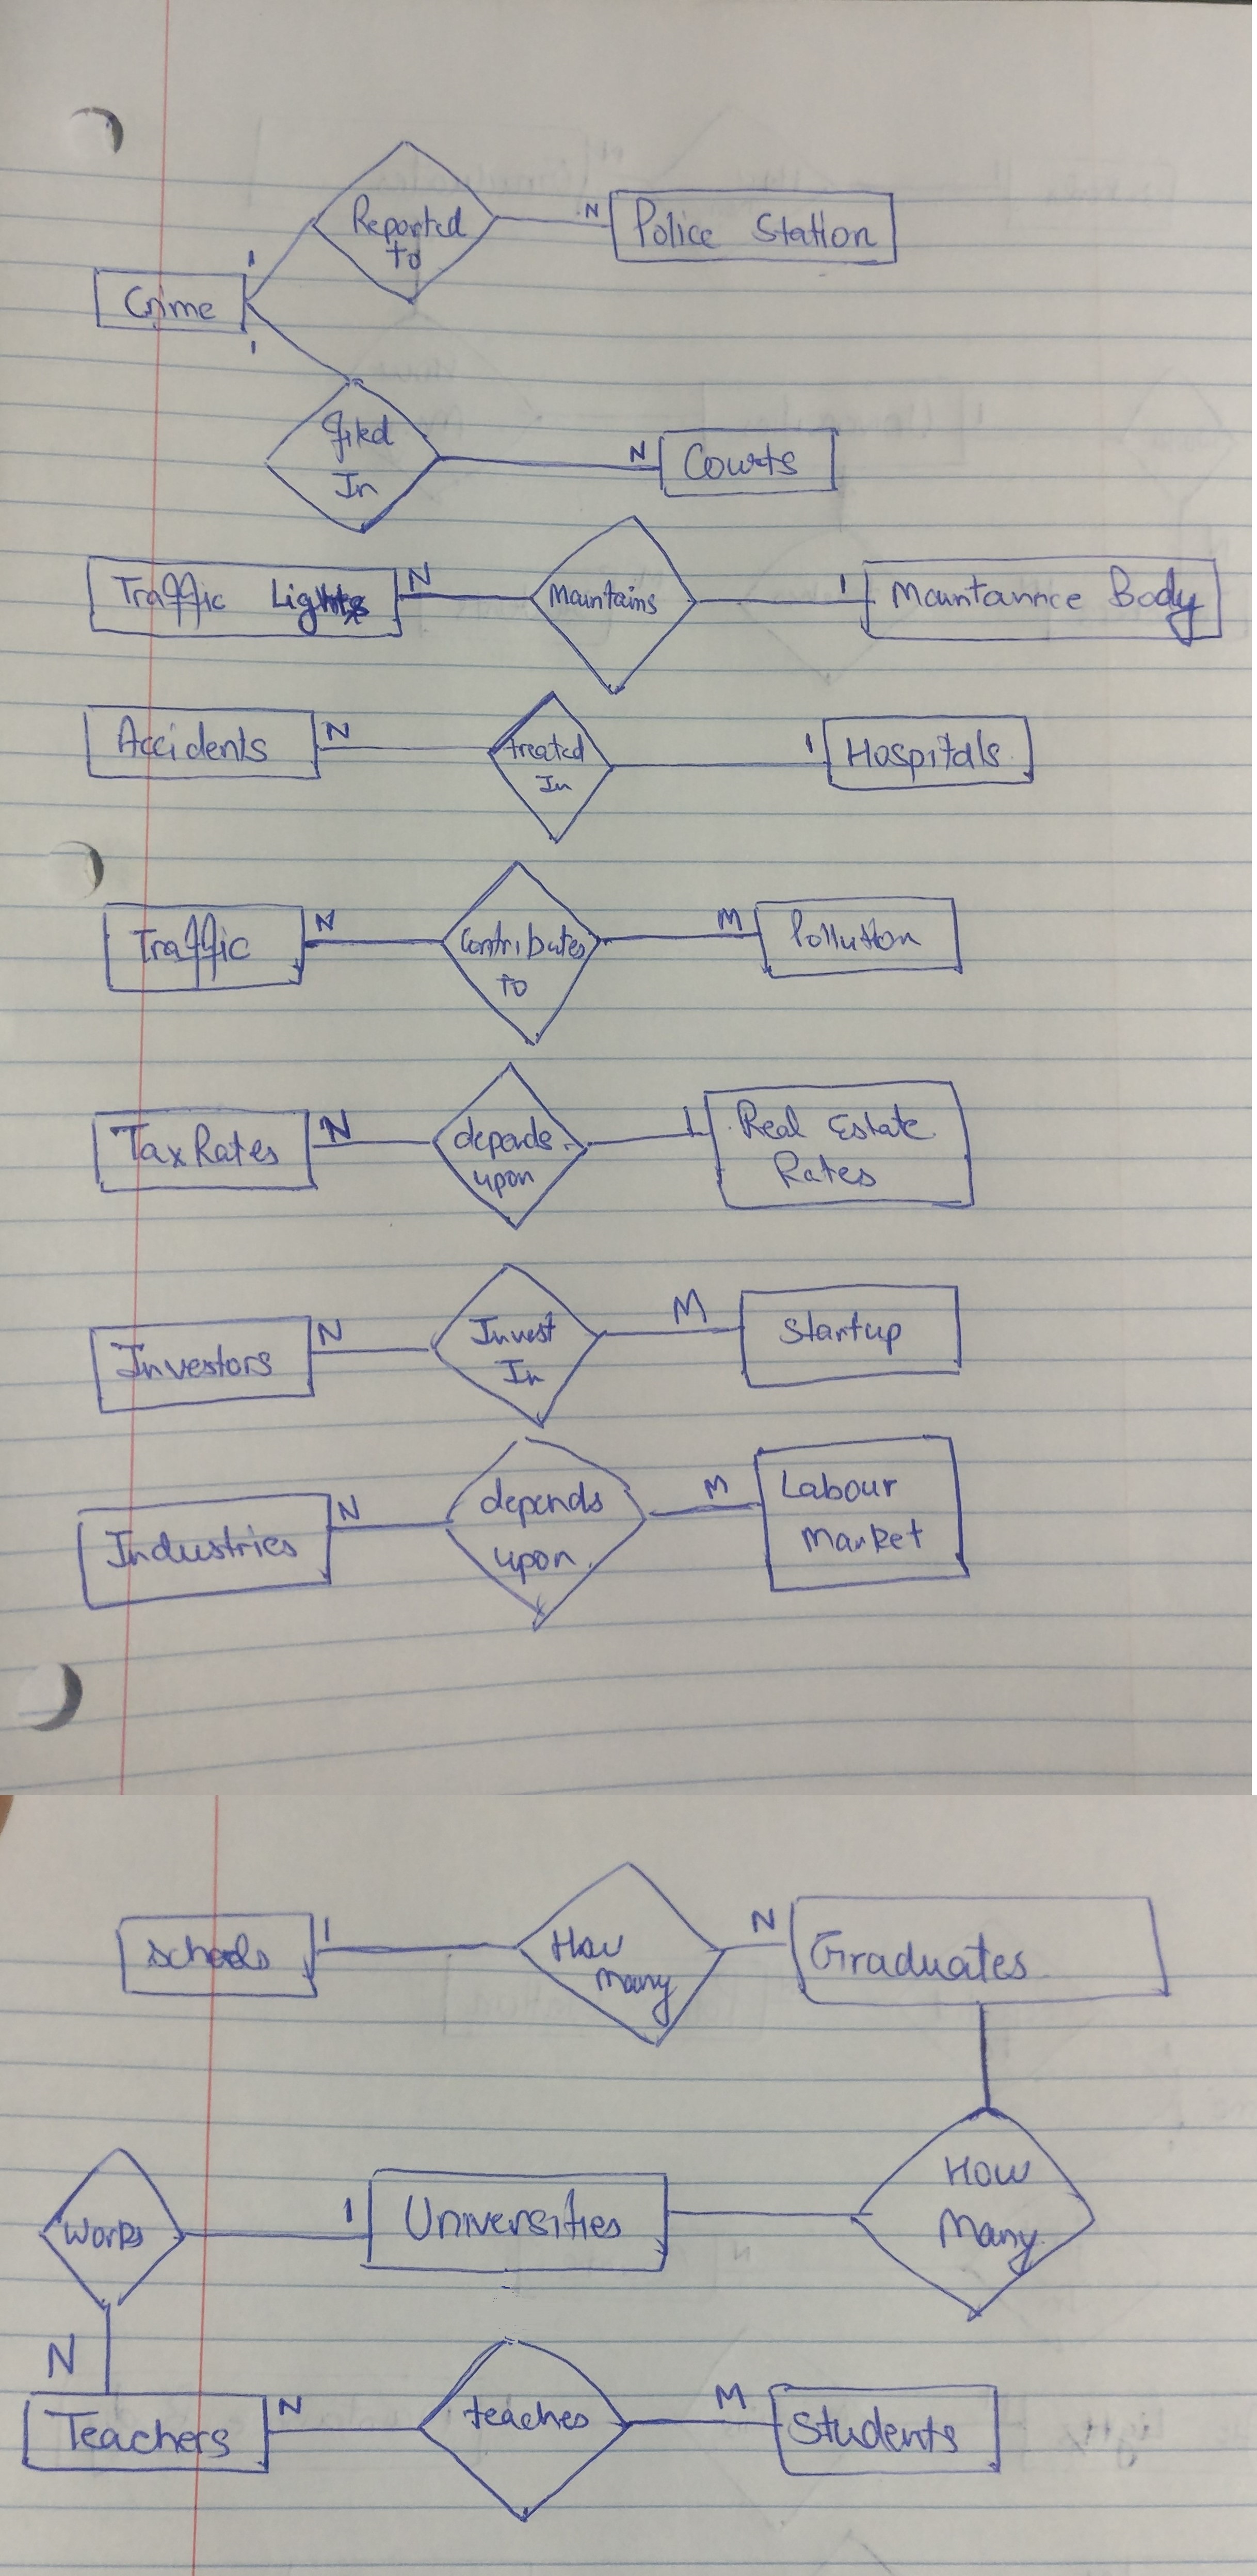 Reported
to
N
Police Station
1
Crime
1
filed
In
N
Courts
Traffic Lights
N
Maintains
1
Maintannce Body
Accidents
N
treated
In
1
Hospitals
Traffic
N
Contributes
To
M
Pollution
Tax Rates
N
depends
upon
1
Real Estate
Rates
Investors
N
Invest
In
M
Startup
Industries
N
depends
upon
M
Labour
Market
Schools
1
How
many
N
Graduates
How
Many
Universities
1
Works
N
Teachers
N
teaches
M
Students